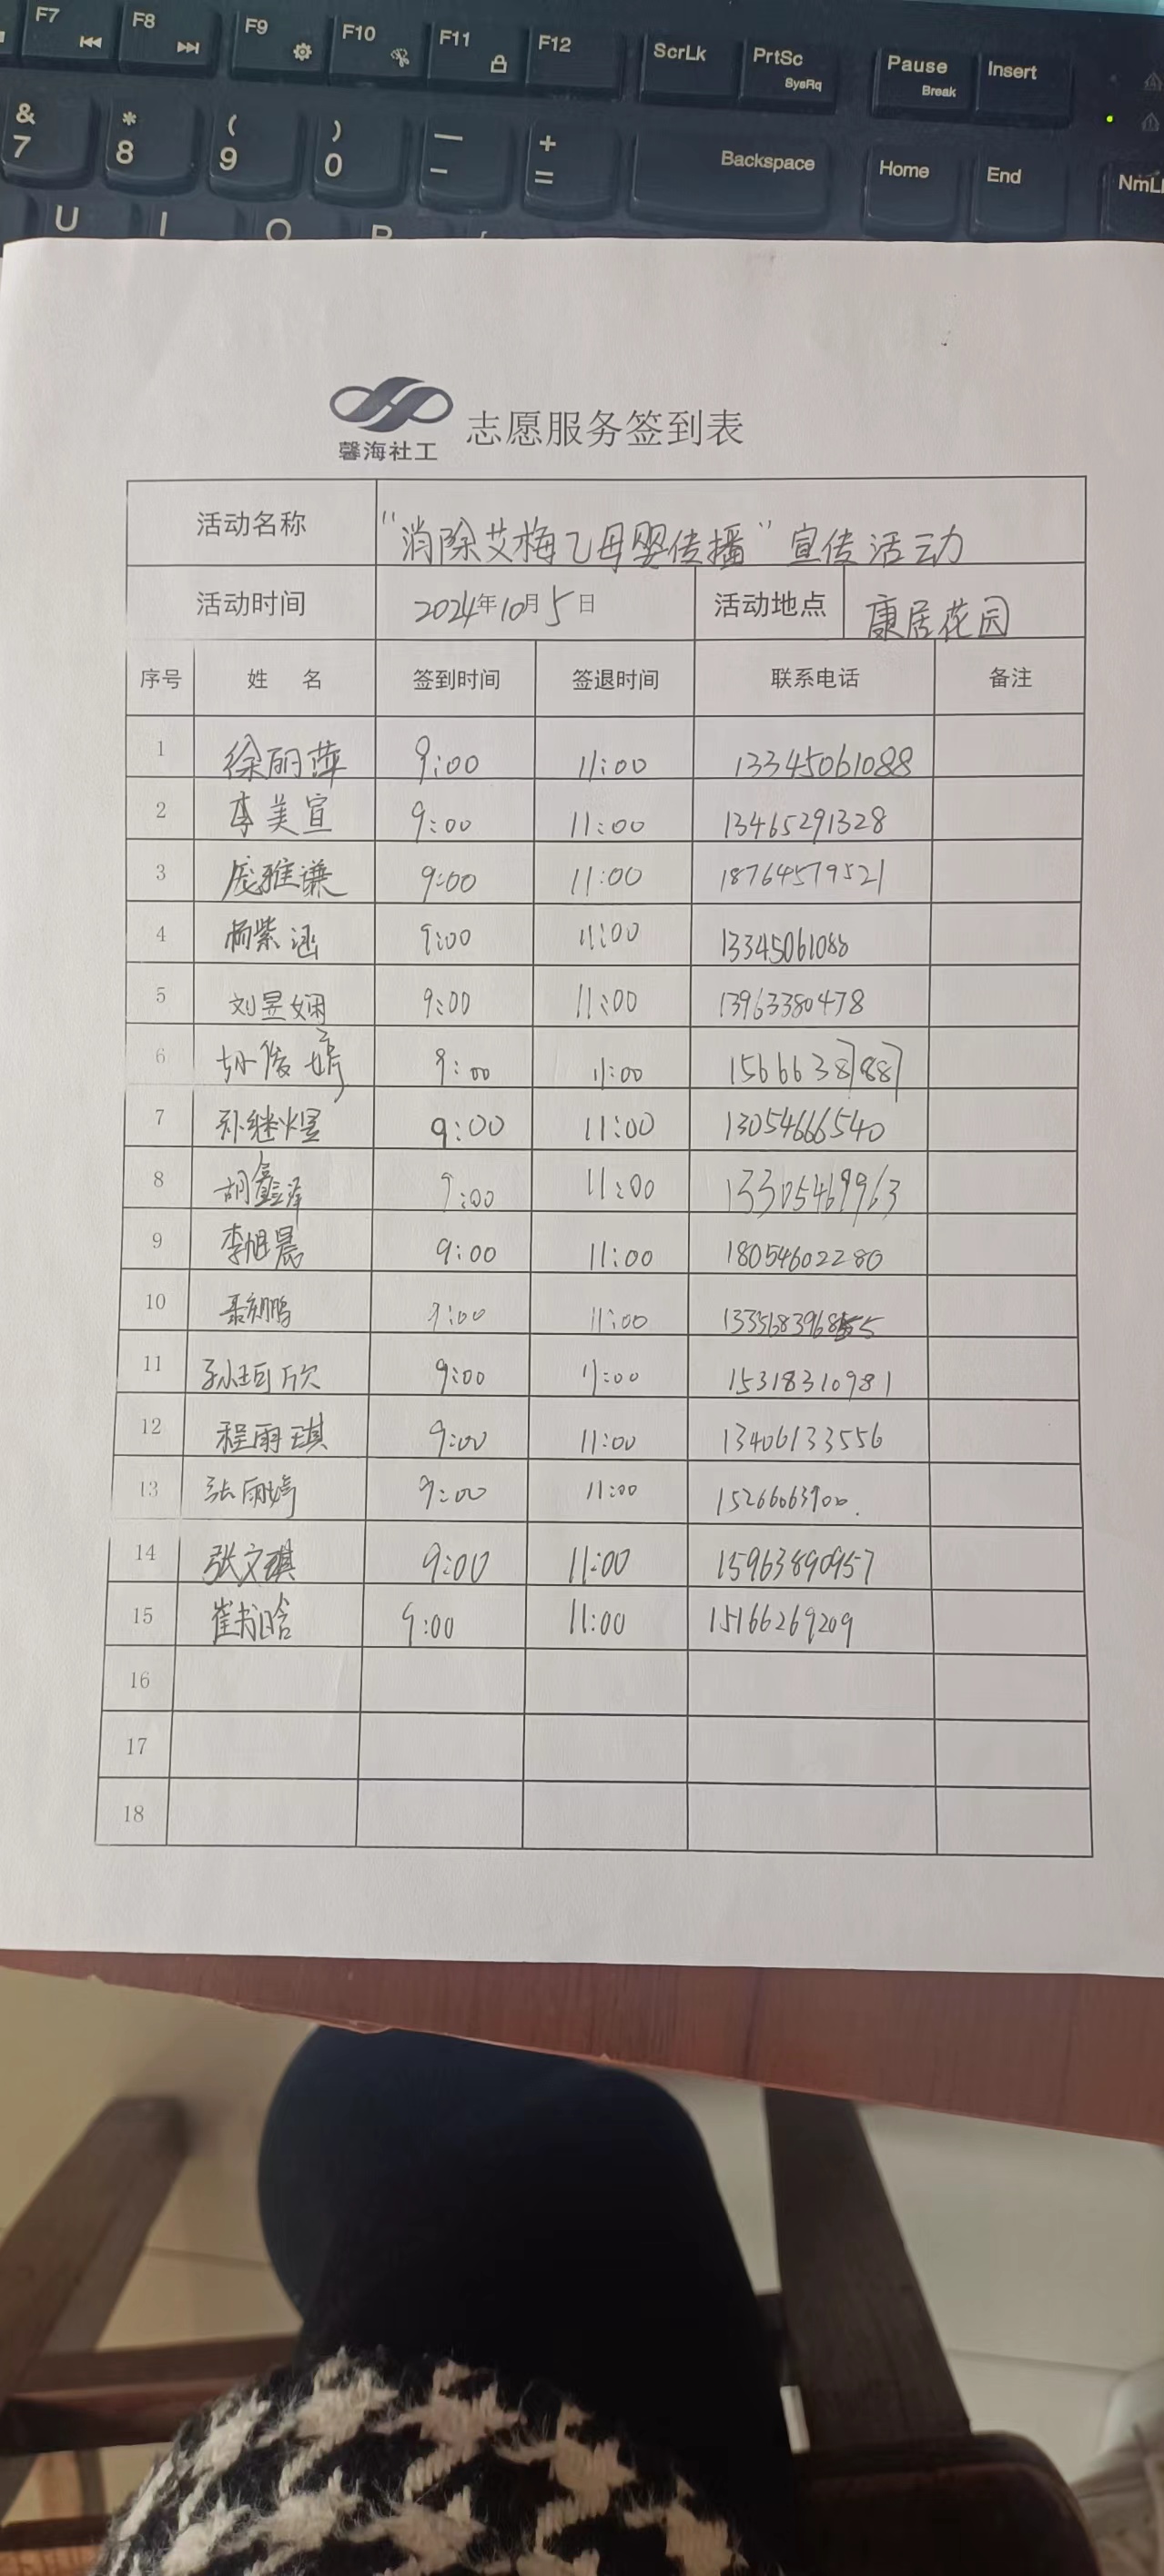 F7 F8 F9 F10 F11 F12 ScrLk PrtSc SysRq Pause Break Insert
& 7 * 8 ( 9 ) 0 — - + = Backspace Home End NmL
U I O P
馨海社工 志愿服务签到表
活动名称 "消除艾梅乙母婴传播"宣传活动
活动时间 2024年10月5日 活动地点 康居花园
序号 姓 名 签到时间 签退时间 联系电话 备注
1 徐丽萍 9:00 11:00 13345061088
2 李美宣 9:00 11:00 13465291328
3 庞雅谦 9:00 11:00 18764579521
4 杨紫涵 9:00 11:00 13345061088
5 刘昱娴 9:00 11:00 13963380478
6 9:00 11:00 15666387887
7 孙继煜 9:00 11:00 13054666540
8 胡鑫泽 9:00 11:00 13305469963
9 李旭晨 9:00 11:00 18054602280
10 9:00 11:00
11 孙珂欣 9:00 11:00 15318310981
12 程雨琪 9:00 11:00 13406133556
13 张雨婷 9:00 11:00 15266063900.
14 张文琪 9:00 11:00 15963890957
15 崔书晗 9:00 11:00 15166269209
16
17
18